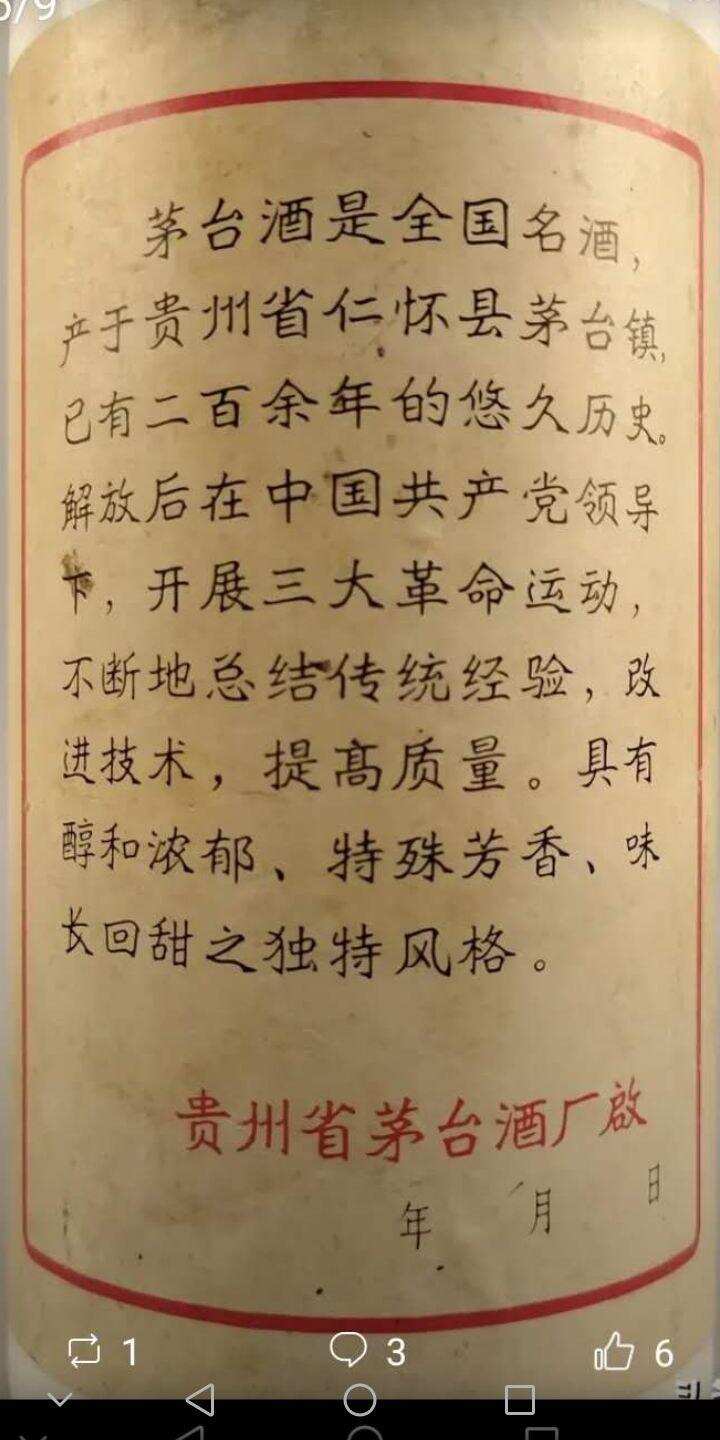 5/9
茅台酒是全国名酒，
产于贵州省仁怀县茅台镇，
已有二百余年的悠久历史。
解放后在中国共产党领导
下，开展三大革命运动，
不断地总结传统经验，改
进技术，提高质量。具有
醇和浓郁、特殊芳香、味
长回甜之独特风格。
贵州省茅台酒厂啟
年 月 日
1 3 6